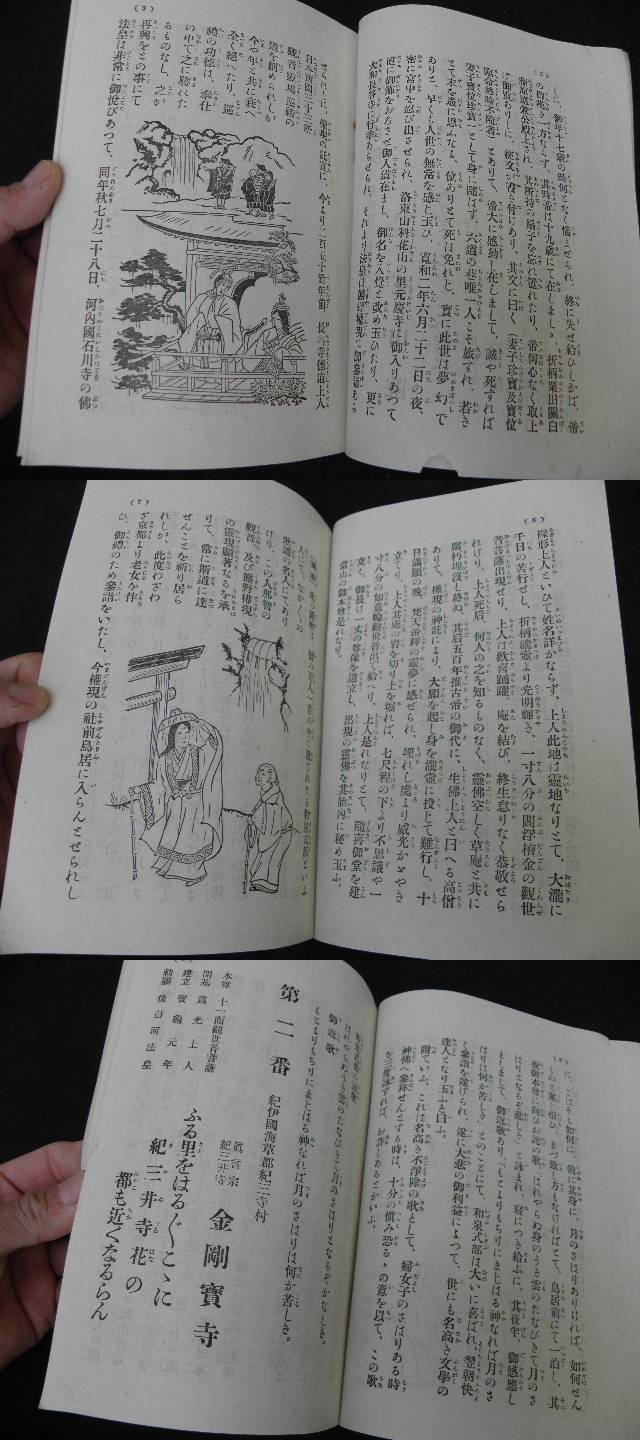 しに、御年十七歳の時何となく惱ませられ、終に失せ給ひしかば、帝
妻子珍寶及寶位
臨命終時不隨者」とありて、帝大に感動し在しまして、誠や死すれば
妻子寶も珍寶も一として身に隨はず、六道の巷唯一人こそ旅すれ、若き
とて末を遙に思ふなる、位ありとて死は免れじ、實に此世は夢幻で
ありと、早くも人世の無常を感じ玉ひ、寬和二年六月二十二日の夜、
密に宮中を忍び出させられ、洛東山科花山の里元慶寺に御入りあつて
道に御飾をおろさせ御入道在まし、御名を入覺と改め玉ひたり、更に
(5)
せられしに、權現の託宣に、今より二百五十餘年前、長谷寺德道上人
日本再國三十三所
觀音靈場巡拜の
道を創められしも
今や年と共に衰へ
全く絕へたり、巡
禮の功德は、奉仕
の中で之に勝れた
るものなし、之が
再興をとの事にて
法皇は非常に御悅びあつて、同年秋七月二十八日、河内國石川寺の佛
(6)
裸形上人といひて姓名詳かならず、上人此地は靈地なりとて、大瀧に
千日の苦行せし、折柄瀧壺より光明輝き、一寸八分の閻浮檀金の觀世
音菩薩出現せり、上人は歡喜踊躍、庵を結び、終生怠りなく恭敬せら
れけり、上人死后、何人の之を知るものなく、靈佛空しく草庵と共に
腐朽埋沒し終ぬ、其后五百年推古帝の御代に、生佛上人と曰へる高僧
ありて、權現の神託により、大願を起し身を瀧壺に投じて難行し、十
日滿願の晩、梵天帝釋の靈夢に感ぜられ、埋れし處より威光かゞやき
立てり、上人其處の岩を切り土を堀れば、七尺程の下より不思議や一
寸八分の如意輪觀世音出で給へり、上人是れなりとて、隨喜御堂を建
立し、御長け一丈の尊像を造立し、出現の靈佛を其胎内に秘め玉ふ、
當山の御本尊是れなり。
(7)
人にて、なかくの
世道の名人にてあり
けり、この人那智の
觀音、及び熊野權現
の靈現顯著なるを承
りて、常に斯道に達
せんことを祈り居ら
れしが、此度わざわ
ざ京都より老女を伴
ひ、御禮のため參詣をいたし、今權現の社前鳥居に入らんとせられし
(8)
に、こはそも如何に、俄に其身に、月のさはりありければ、如何せん
ものと案じ煩ひ、まづ致し方もなければとて、鳥居前にて一泊し、其
夜御本尊に向ひお詫の歌、「はれやらぬ身のうき雲のたなびきて月のさ
はりとなるぞ悲しき」と詠まれ、寢につき給ふに、其夜半、御感應し
ましまして、御返歌あり、「もとよりもちりにまじはる神なれば月のさ
はりは何か苦しき」とのことにて、和泉式部は大いに喜ばれ、翌朝快
く參詣を遂げられ、遂に大悲の御利益によつて、世にも名高き文學の
達人となり玉ふと曰ふ。
附ていふ、これは名高き不淨除の歌として、婦女子のさはりある時
神佛へ參拜せんとする時は、十分の愼み恐るゝの意を以て、この歌
を三度詠ずれば、お許しあるとかいふ。
はれやらぬうき雲のたなびきて月のさはりとなるぞかなしき。
御返歌
もとよりもちりにまじはる神なれば月のさはりは何か苦しき。
第二番
紀伊國海草郡紀三寺村
眞言宗
紀三井寺
金剛寶寺
本尊 十一面觀世音菩薩
開基 爲光上人
建立 寶龜元年
勅願 後白河法皇
ふる里をはるぐこゝに
紀三井寺花の
都も近くなるらん